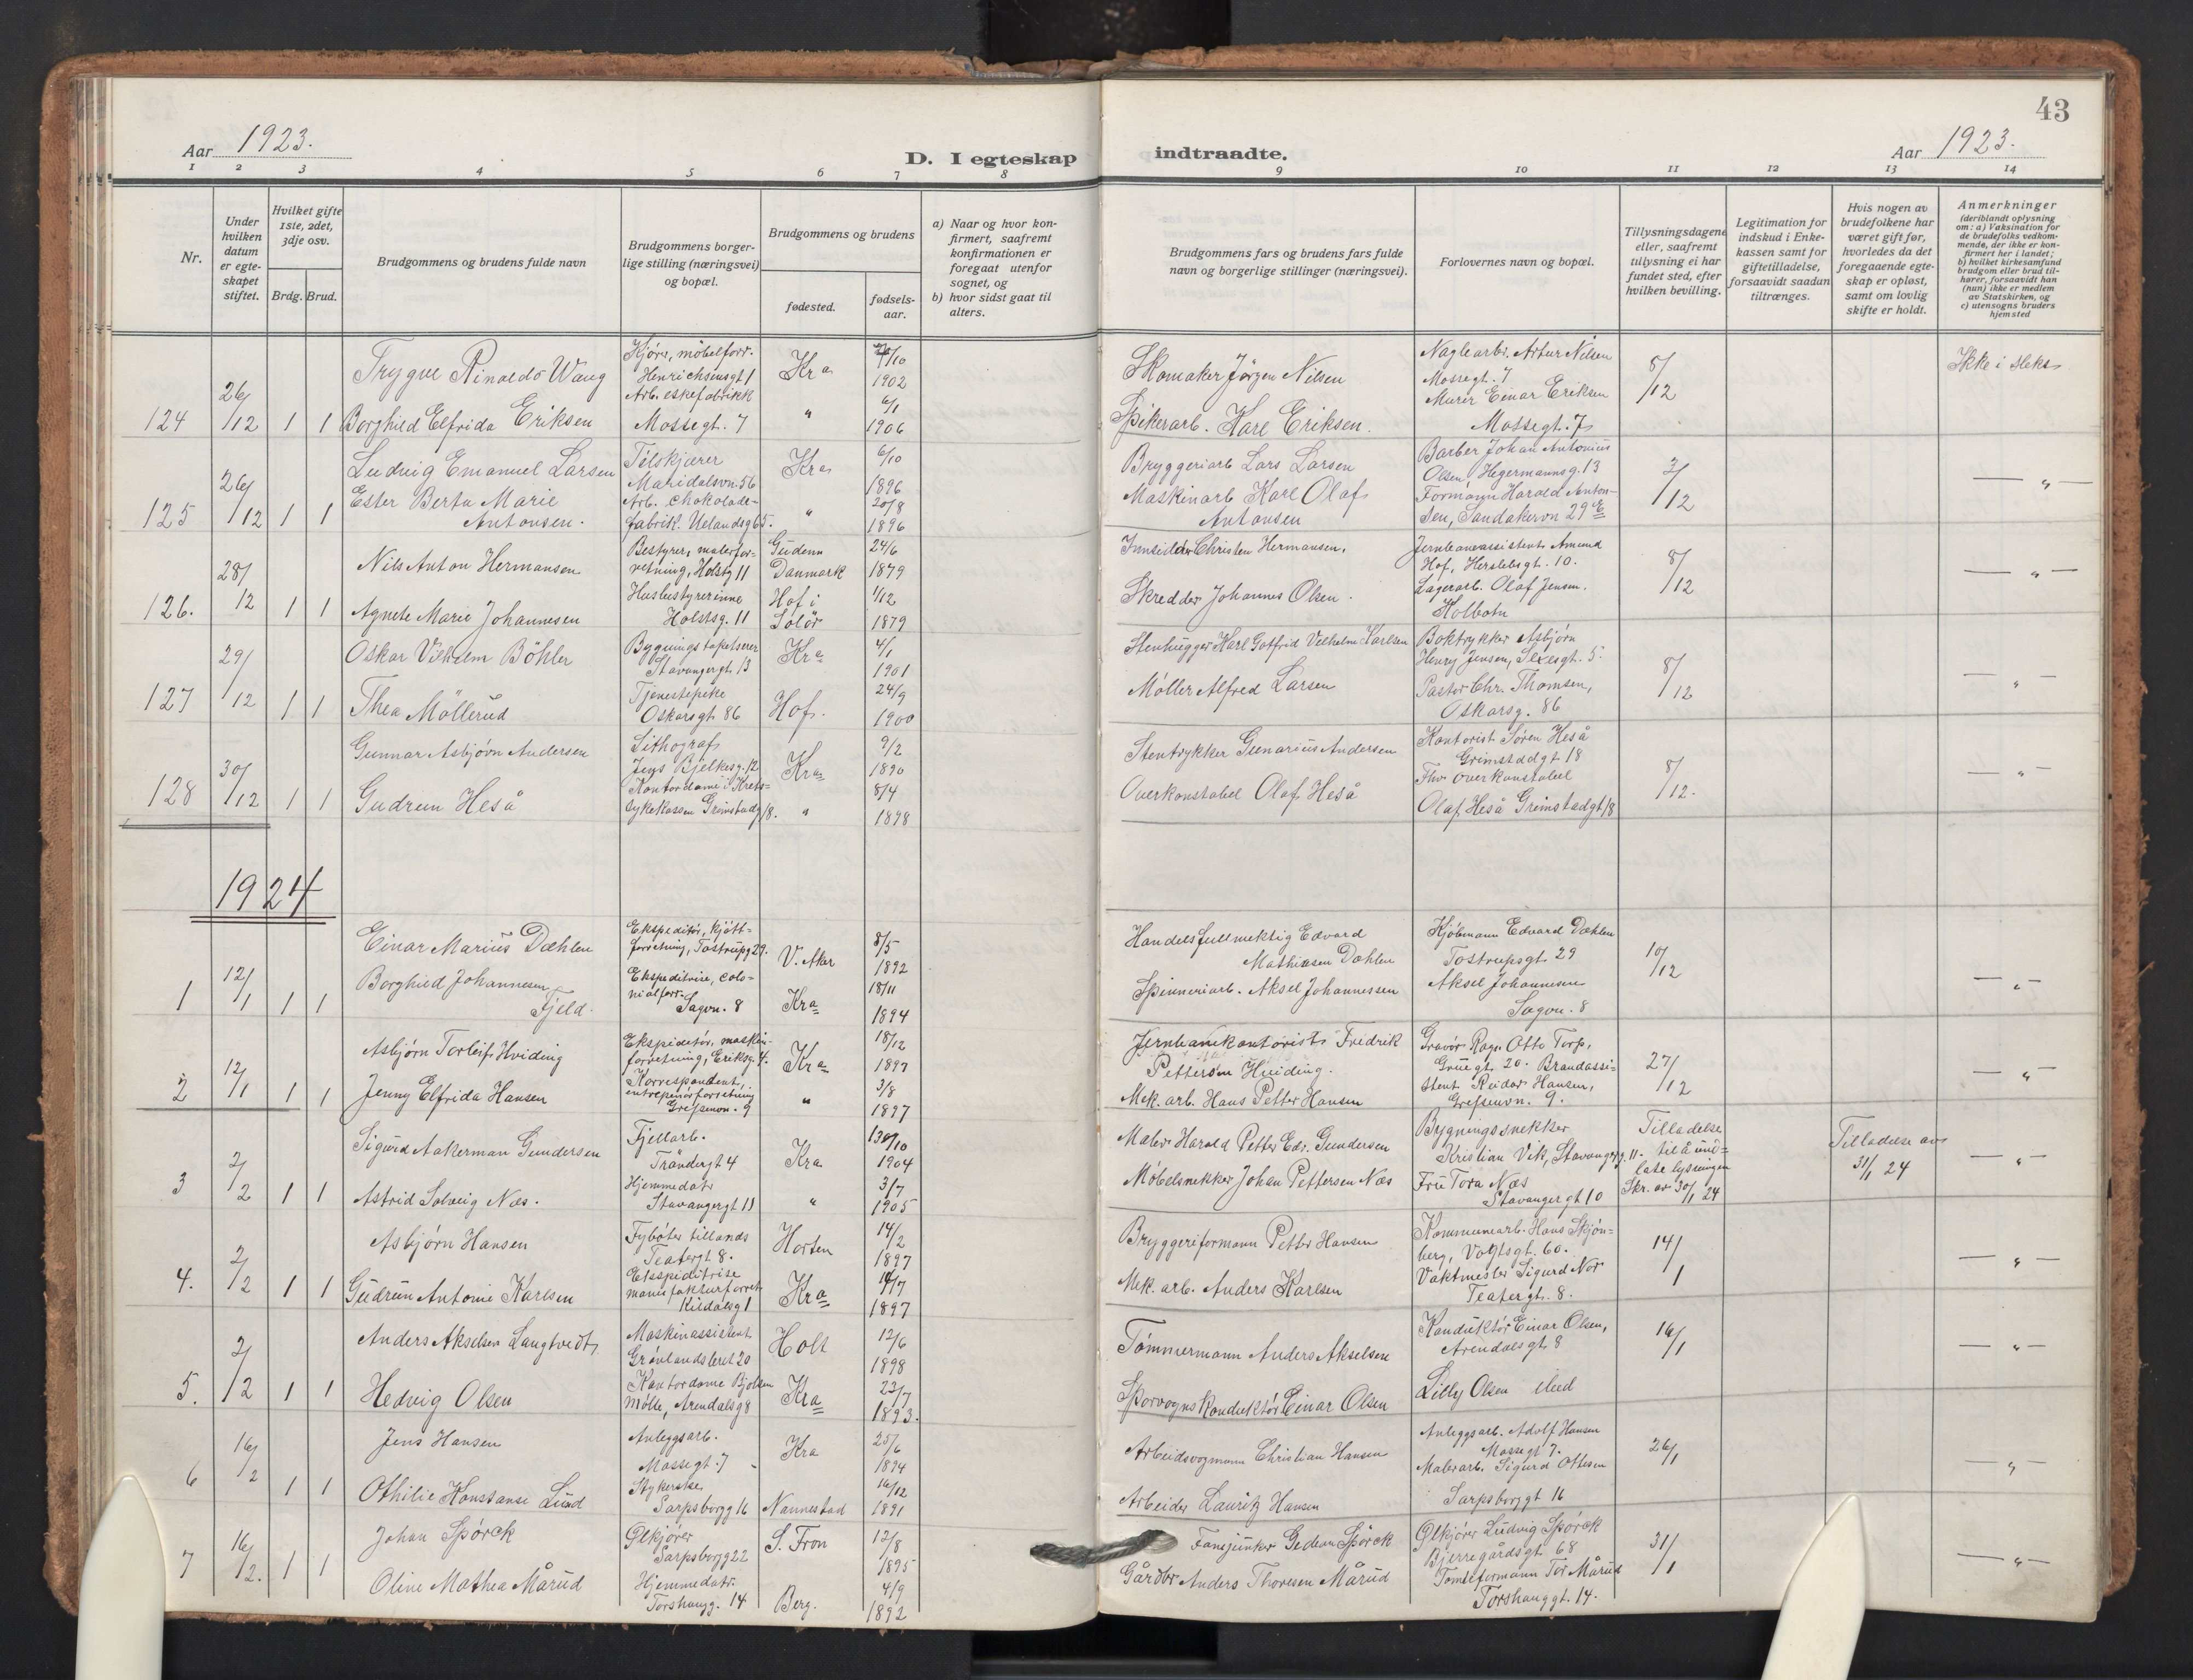 43
Aar 1923.
D. I egteskap indtraadte.
Aar 1923.
1 2 3 4 5 6 7 8 9 10 11 12 13 14
Nr.
Under hvilken datum er egte-skapet stiftet.
Hvilket gifte 1ste, 2det, 3dje osv.
Brdg. Brud.
Brudgommens og brudens fulde navn
Brudgommens borger-lige stilling (næringsvei) og bopæl.
Brudgommens og brudens
fødested.
fødsels-aar.
a) Naar og hvor kon-firmert, saafremt konfirmationen er foregaat utenfor sognet, og
b) hvor sidst gaat til alters.
Brudgommens fars og brudens fars fulde navn og borgerlige stillinger (næringsvei).
Forlovernes navn og bopæl.
Tillysningsdagene eller, saafremt tillysning ei har fundet sted, efter hvilken bevilling.
Legitimation for indskud i Enke-kassen samt for giftetilladelse, forsaavidt saadan tiltrænges.
Hvis nogen av brudefolkene har været gift før, hvorledes da det foregaaende egte-skap er opløst, samt om lovlig skifte er holdt.
Anmerkninger (deriblandt oplysning om: a) Vaksination for de brudefolks vedkom-mende, der ikke er kon-firmert her i landet; b) hvilket kirkesamfund brudgom eller brud til-hører, forsaavidt han (hun) ikke er medlem av Statskirken, og c) utensogns bruders hjemsted
124 26/12 1 1
Trygve Rinaldo Wang
Kjører, møbelforr. Henrichsensgt 1
Kra /10 1902
Skomaker Jørgen Nilsen
Naglearb. Artur Nilsen Mossegt. 7
8/12
Ikke i slekt
Borghild Elfrida Eriksen
Arb. eskefabrikk Mossegt. 7
" 6/1 1906
Spikerarb. Karl Eriksen.
Murer Einar Eriksen Mossegt. 7
125 26/12 1 1
Ludvig Emanuel Larsen
Maridalsvn. 56
Kra 6/10 1896
Bryggeriarb Lars Larsen
Barber Johan Antonius Olsen, Hegermannsg. 13
/12
— " —
Ester Berta Marie Antonsen.
Arb. chokolade-fabrik. Uelandsg 65.
" 20/8 1896
Maskinarb Karl Olaf Antonsen
Formann Harald Anton-sen, Sandakervn 29 E
126. 28/12 1 1
Nils Anton Hermansen
Bestyrer, malerfor-retning, Holstg 11
Danmark 24/6 1879
Christen Hermansen.
Jernbaneassistent Amund Hof, Herslebsgt. 10.
8/12
— " —
Agnete Marie Johannesen
Husbestyrerinne Holstsg. 11
Hof i Solør 1/12 1879
Skredder Johannes Olsen.
Lagerarb. Olaf Jensen. Kolbotn
127 29/12 1 1
Oskar Vilhelm Böhler
Bygningstapetserer Stavangergt 13
Kra 4/1 1901
Stenhugger Karl Gotfrid Vilhelm Karlsen
Boktrykker Asbjørn Henry Jensen, Sexesgt. 5.
8/12
— " —
Thea Möllerud
Tjenestepike Oskarsgt 86
Hof. 24/9 1900
Møller Alfred Larsen
Pastor Chr. Thomsen, Oskarsg. 86
128 30/12 1 1
Gunnar Asbjørn Andersen
Lithograf Jens Bjelkesg. 12
Kra 9/2 1890
Stentrykker Gunarius Andersen
Kontorist Søren Heså Grimstadgt 18
8/12.
— " —
Gudrun Heså
Kontordame i Krets-sykekassen Grimstadg 18.
" 8/4 1898
Overkonstabel Olaf Heså
Fhv overkonstabel Olaf Heså Grimstadgt 18
1924
1 12/1 1 1
Einar Marius Dæhlen
Ekspeditør, kjött-forretning, Tostrupg 29.
V. Aker 8/5 1892
Handelsfullmektig Edvard Mathiesen Dæhlen
Kjöbmann Edvard Dæhlen Tostrupsgt 29
10/12
— " —
Borghild Johannesen Fjeld.
Ekspeditrise, colo-nialforr. Sagvn. 8
Kra 18/11 1894
Spinneriarb. Aksel Johannessen
Aksel Johannesen Sagvn. 8
2 12/1 1 1
Asbjørn Torleif Hviding
Ekspeditör, maskin-forretning, Eriksg. 4.
Kra 18/12 1897
Jernbanekontorist Fredrik Pettersen Hviding.
Gravör Ragn. Otto Torp, Grüegt 20.
27/12
— " —
Jenny Elfrida Hansen
Korrespondent, entrepenörforretning Grefsenvn. 9
" 3/8 1897
Mek. arb. Hans Petter Hansen
Brandassi-stent Reidar Hansen, Grefsenvn. 9.
3 2/2 1 1
Sigurd Aakerman Gundersen
Fjellarb. Tröndergt 4
Kra 30/10 1904
Maler Harald Petter Edv. Gundersen
Bygningssnekker Kristian Vik, Stavangerg. 11
Tilladelse til å und-late lysningen Skr. av 30/1 24
Tilladelse av 31/1 24
— " —
Astrid Solveig Næs.
Hjemmedatr Stavangergt 11
" 3/7 1905
Møbelsnekker Johan Pettersen Næs
Fru Tora Næs Stavangergt 10
4. 2/2 1 1
Asbjørn Hansen
Fyrbøter tillands Teatergt 8.
Horten 14/2 1897
Bryggeriformann Petter Hansen
Kommunearb. Hans Skjøn-berg, Vogtsgt. 60.
14/1
— " —
Gudrun Antonie Karlsen
Ekspeditrise manufakturforret. Kildalsg 1
Kra /7 1897
Mek. arb. Anders Karlsen
Vaktmester Sigurd Nor Teatergt. 8.
5. 2/2 1 1
Anders Akselsen Langtvedt
Maskinassistent Grønlandsleret 20
Holt 12/6 1898
Tömmermann Anders Akselsen
Konduktör Einar Olsen, Arendalsgt 8
16/1
— " —
Hedvig Olsen
Kontordame Bjølsen mølle, Arendalsg 8
Kra 23/7 1893.
Sporvognskonduktör Einar Olsen
Lilly Olsen
6 16/2 1 1
Jens Hansen
Anleggsarb. Mossegt. 7
Kra 25/6 1894
Arbeidsvogmann Christian Hansen
Anleggsarb. Adolf Hansen Mossegt 7.
26/1
— " —
Othilie Konstanse Lund
Sarpsborgg 16
Nannestad 16/12 1891
Arbeider Lauritz Hansen
Malerarb. Sigurd Ottesen Sarpsborggt 16
7 16/2. 1 1
Johan Spörck
Ølkjører Sarpsborgg 22
S. Fron 12/8 1895
Fanejunker Gedeon Spörck
Ølkjører Ludvig Spörck Bjerregårdsgt 68
31/1
— " —
Oline Mathea Mårud
Hjemmedatr. Torshaugg. 14
Berg. 4/9 1892
Gårdbr Anders Thoresen Mårud
Tomteformann Tor Mårud Torshauggt. 14.